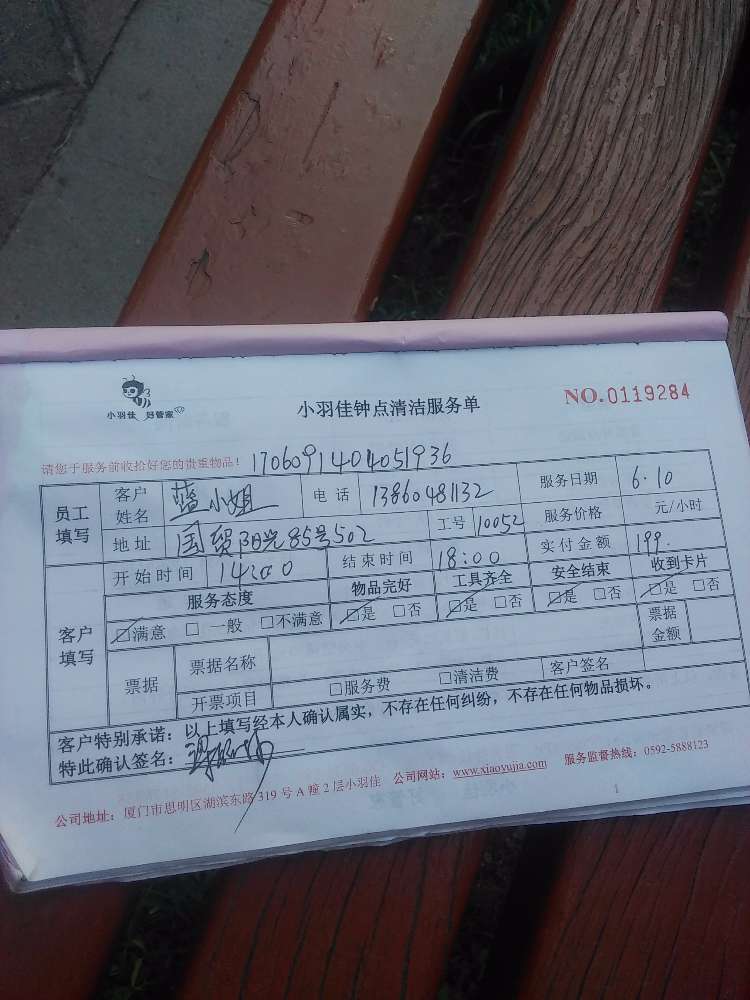 小羽佳 好管家
小羽佳钟点清洁服务单
NO.0119284
请您于服务前收拾好您的贵重物品! 1706091404051936
员工填写 客户姓名 蓝小姐 电话 13860481132 服务日期 6.10
地址 国贸阳光85号502 工号 10052 服务价格 元/小时
客户填写 开始时间 14:00 结束时间 18:00 实付金额 199.
服务态度 物品完好 工具齐全 安全结束 收到卡片
☑满意 □一般 □不满意 ☑是 □否 ☑是 □否 ☑是 □否 ☑是 □否
票据 票据名称 票据金额
开票项目 □服务费 □清洁费 客户签名
客户特别承诺：以上填写经本人确认属实，不存在任何纠纷，不存在任何物品损坏。
特此确认签名：
公司地址：厦门市思明区湖滨东路319号A幢2层小羽佳 公司网站：www.xiaoyujia.com 服务监督热线：0592-5888123
1